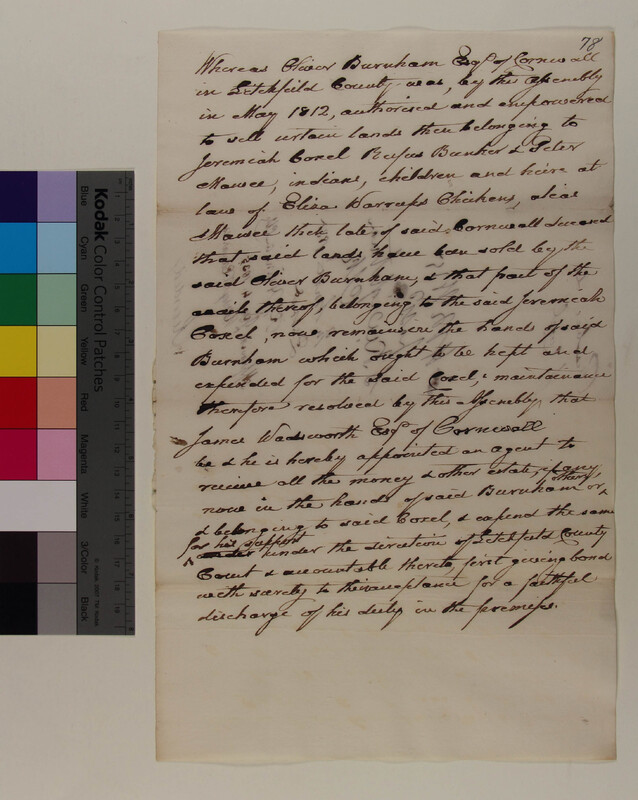 78
Whereas Oliver Burnham Esqr. of Cornwall
in Litchfield County was, by this Assembly
in May 1812, authorised and empowered
to sell certain lands then belonging to
Jeremiah Coxel Rufus Bunker & Peter
Mawee, indians, children and heirs at
law of Eliza Warrups Chickens, alias
Mawee then late of said Cornwall deceased
that said lands have been sold by the
said Oliver Burnham, & that part of the
avails thereof, belonging to the said Jeremiah
Coxel, now remains in the hands of said
Burnham which ought to be kept and
expended for the said Coxel,s maintainance
therefore resolved by this Assembly that
James Wadsworth Esqr. of Cornwall
be & he is hereby appointed an agent to
receive all the money & other estate, if any
now in the hands of said Burnham or others
& belonging to said Coxel, & expend the same
for his support
under the direction of Litchfield County
Court & accountable thereto, first giving bond
with surety to their acceptance for a faithful
discharge of his duty in the premises.
Kodak Color Control Patches
Blue
Cyan
Green
Yellow
Red
Magenta
White
3/Color
Black